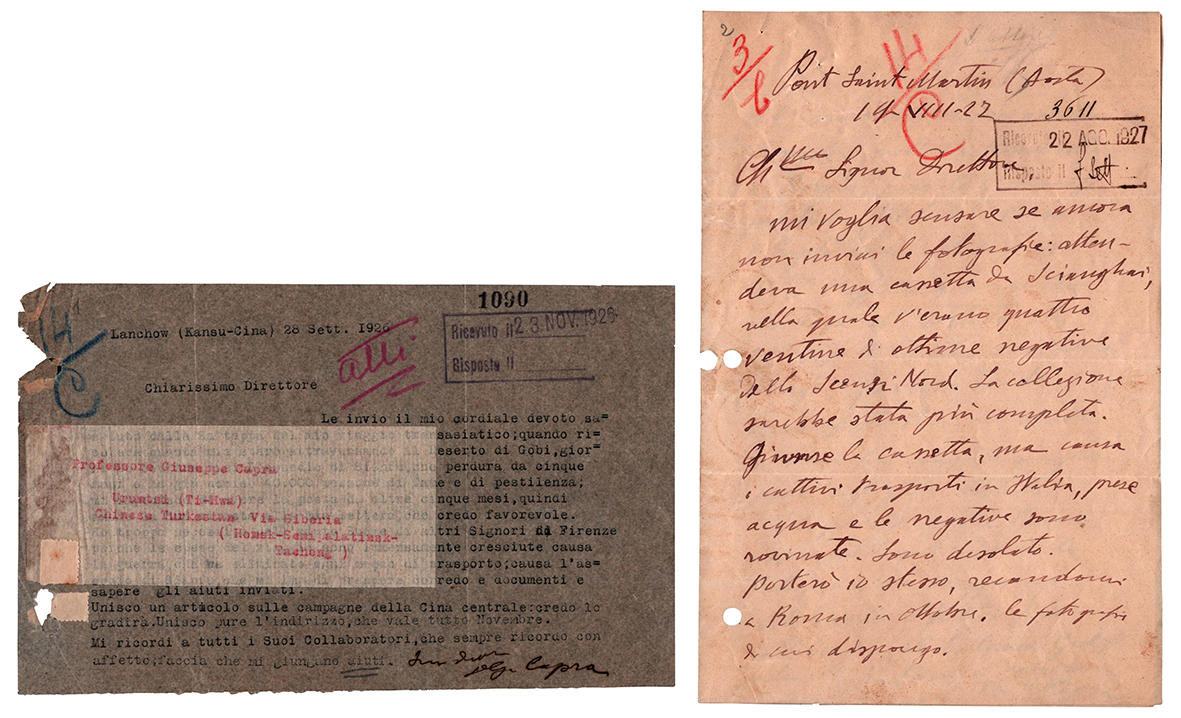 1090
14
C
Lanchow (Kansu-Cina) 28 Sett. 1926
atti
Ricevuto il 23 NOV. 1926
Risposto il
Chiarissimo Direttore
Le invio il mio cordiale devoto sa=
asiatico;quando ri=
eserto di Gobi,gior=
che perdura da cinque
e di pestilenza;
cinque mesi,quindi
credo favorevole.
altri Signori di Firenze
cresciute causa
trasporto;causa l'as=
redo e documenti e
sapere gli aiuti inviati.
Unisco un articolo sulle campagne della Cina centrale:credo lo
gradirà.Unisco pure l'indirizzo,che vale tutto Novembre.
Mi ricordi a tutti i Suoi Collaboratori,che sempre ricordo con
affetto;faccia che mi giungano aiuti.
Capra
Professore Giuseppe Capra
Urumtsi (Ti-Hwa)
Chinese Turkestan Via Siberia
( Homsk-Semipalatinsk-
Tacheng )
2
3/C
14/C
Pont Saint Martin (Aosta)
19-VIII-27
3611
Ricevuto il 22 AGO. 1927
Risposto il Sett
Ch.mo Signor Direttore,
mi voglia scusare se ancora
non inviai le fotografie: atten-
deva una cassetta da Scianghai,
nella quale v'erano quattro
ventine di ottime negative
dello Scensi Nord. La collezione
sarebbe stata più completa.
Giunse la cassetta, ma causa
i cattivi trasporti in Italia, prese
acqua e le negative sono
rovinate. Sono desolato.
Porterò io stesso, recandomi
a Roma in Ottobre, le fotografie
di cui dispongo.